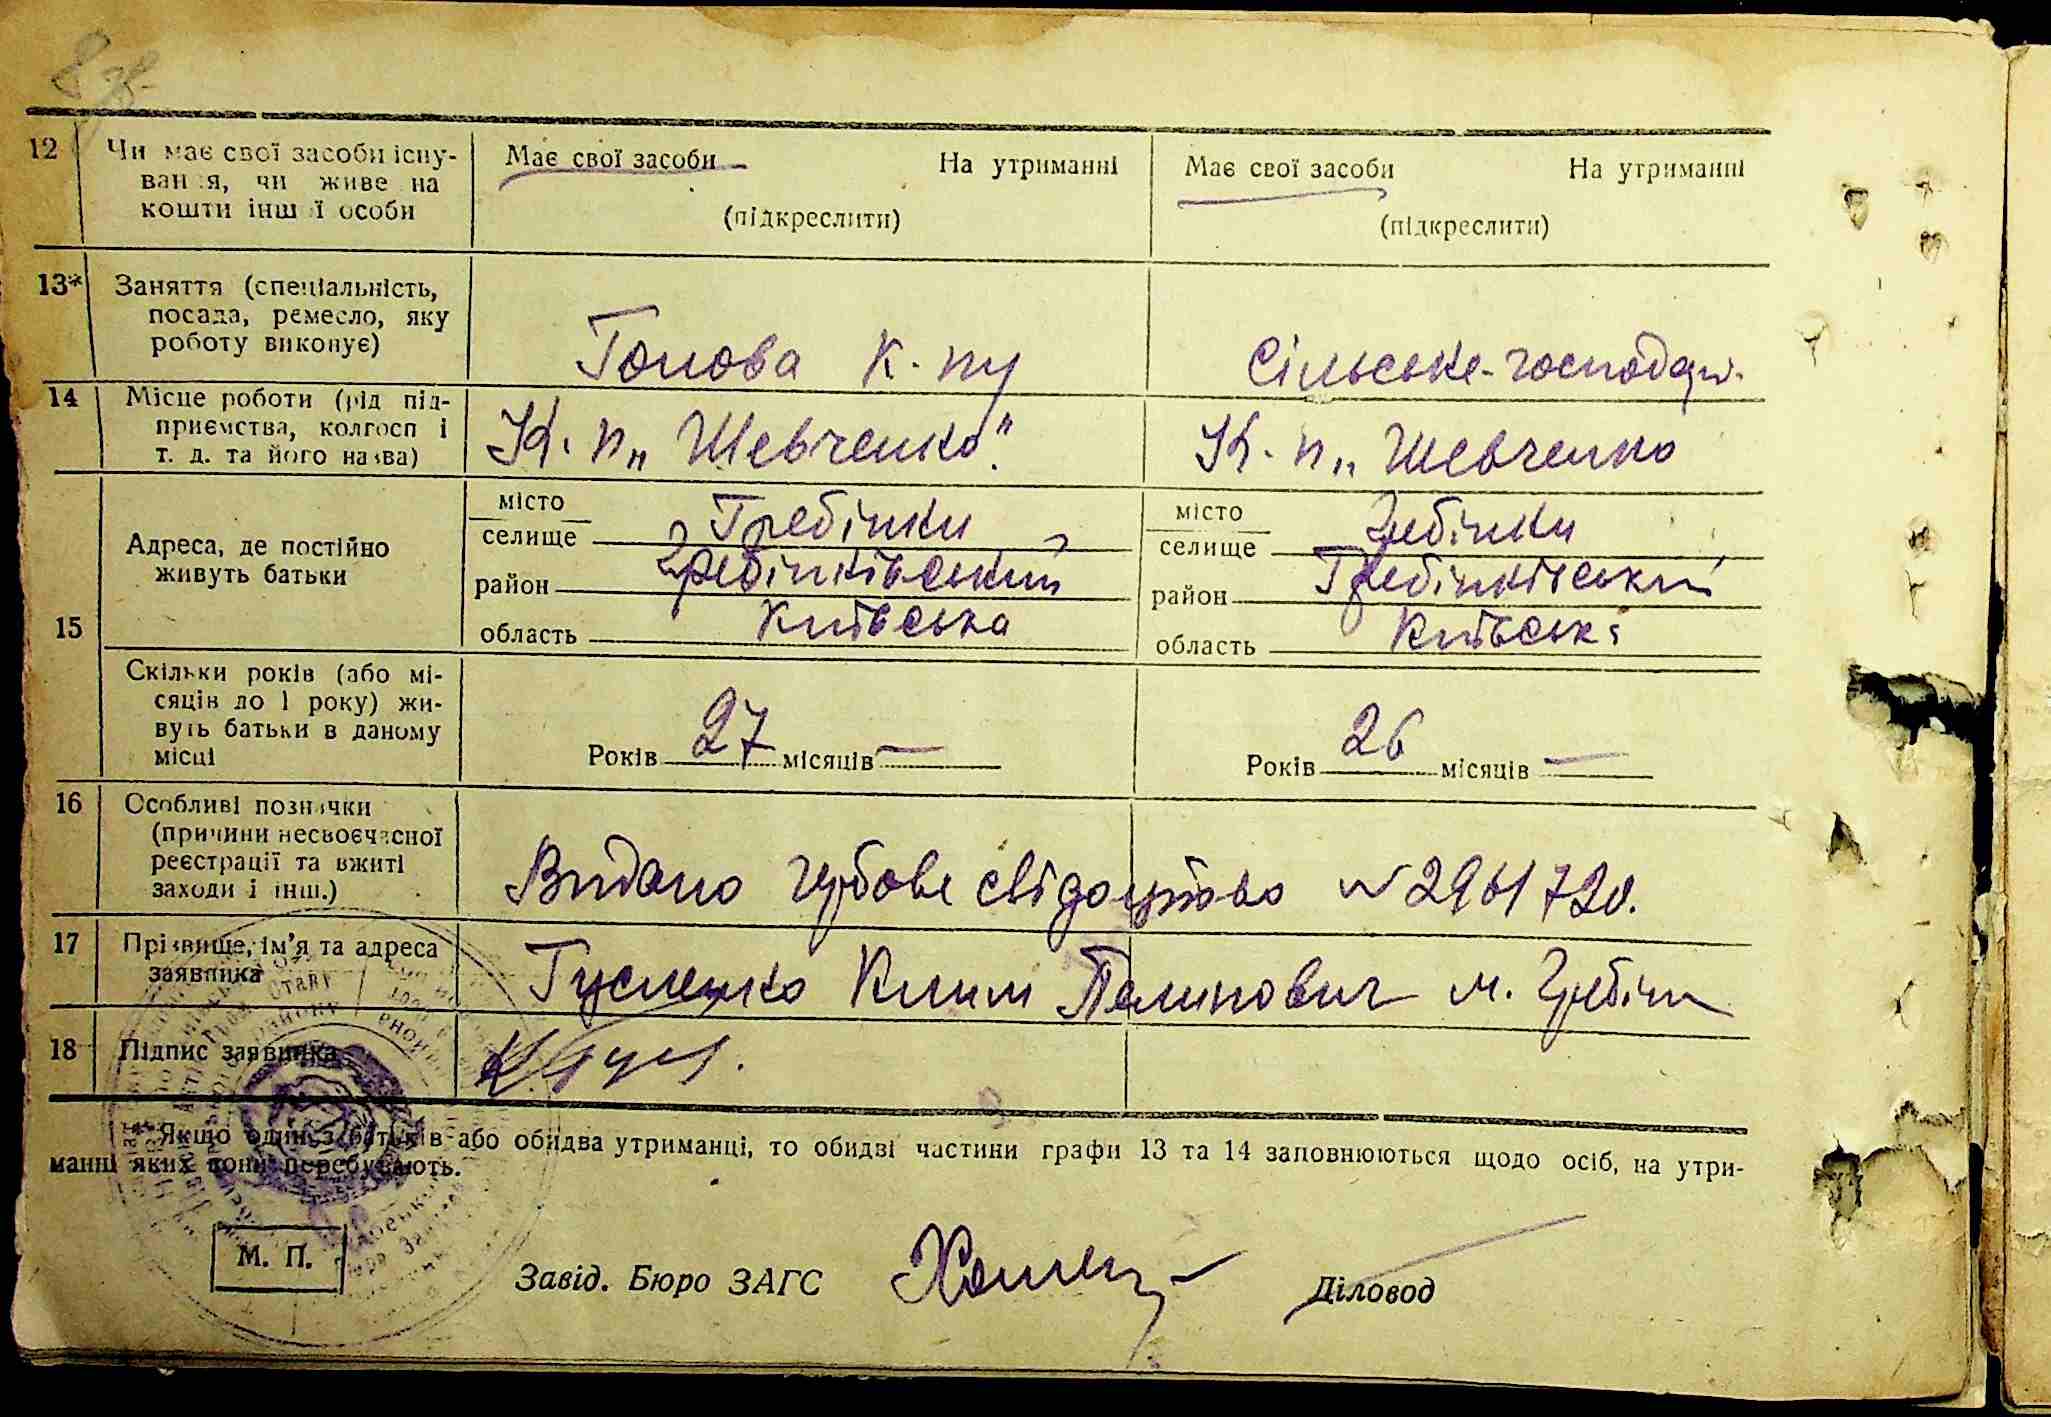 8 зв.
12 Чи має свої засоби існу-
вання, чи живе на
кошти іншої особи
Має свої засоби На утриманні
(підкреслити)
Має свої засоби На утриманні
(підкреслити)
13* Заняття (спеціальність,
посада, ремесло, яку
роботу виконує)
Голова К-пу
Сільське-господар.
14 Місце роботи (рід під-
приємства, колгосп і
т. д. та його назва)
К. п „Шевченко".
К. п „Шевченко
15 Адреса, де постійно
живуть батьки
місто
селище Гребінки
район Гребінківський
область Київська
місто
селище Гребінки
район Гребінківський
область Київськ
Скільки років (або мі-
сяців до 1 року) жи-
вуть батьки в даному
місці
Років 27 місяців —
Років 26 місяців —
16 Особливі позначки
(причини несвоєчасної
реєстрації та вжиті
заходи і інш.)
Видано гербове свідоцтво №
17 Прізвище, ім'я та адреса
заявника
Клим м. Гребінк
18 Підпис заявника
* Якщо один з батьків або обидва утриманці, то обидві частини графи 13 та 14 заповнюються щодо осіб, на утри-
манні яких вони перебувають.
М. П.
Завід. Бюро ЗАГС
Діловод